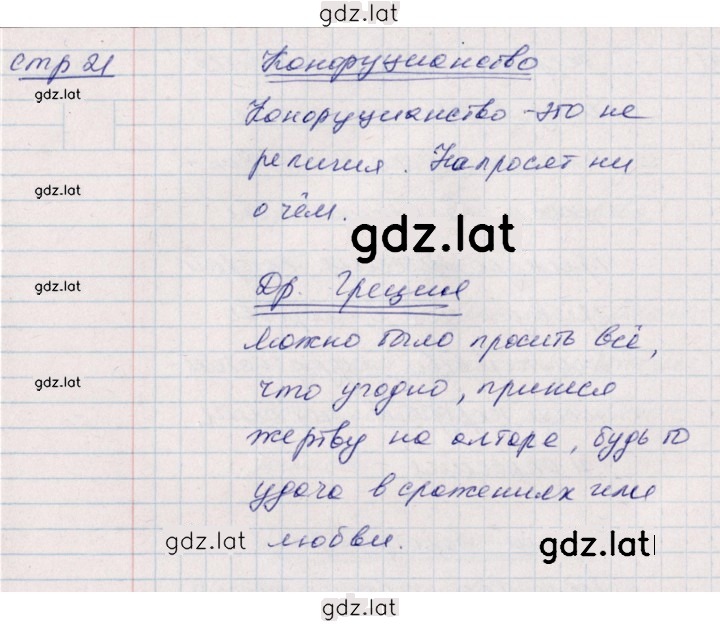 gdz.lat
стр 21
Конфуцианство
gdz.lat
Конфуцианство - это не
религия. Напросят ни
gdz.lat
о чём.
gdz.lat
Др. Греция
gdz.lat
можно было просить всё,
gdz.lat
что угодно, принеся
жертву на алтаре, будь то
удача в сражениях или
gdz.lat
любви.
gdz.lat
gdz.lat